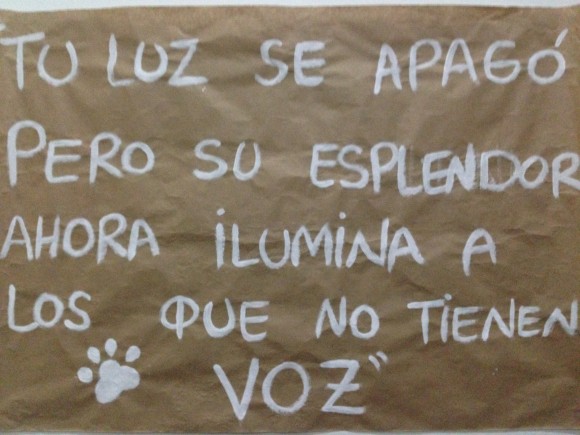 "TU LUZ SE APAGÓ
PERO SU ESPLENDOR
AHORA iLUMiNA A
LOS QUE NO TiENEN
VOZ"